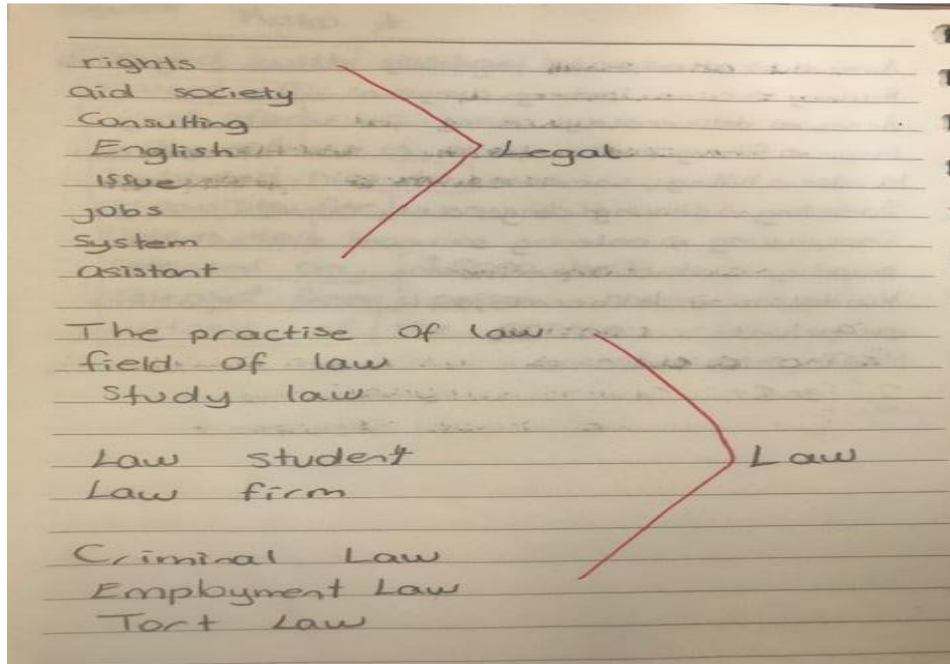 rights
aid society
Consulting
English
issue
jobs
System
asistant
Legal
The practise of law
field of law
Study law
Law student
Law firm
Criminal Law
Employment Law
Tort Law
Law